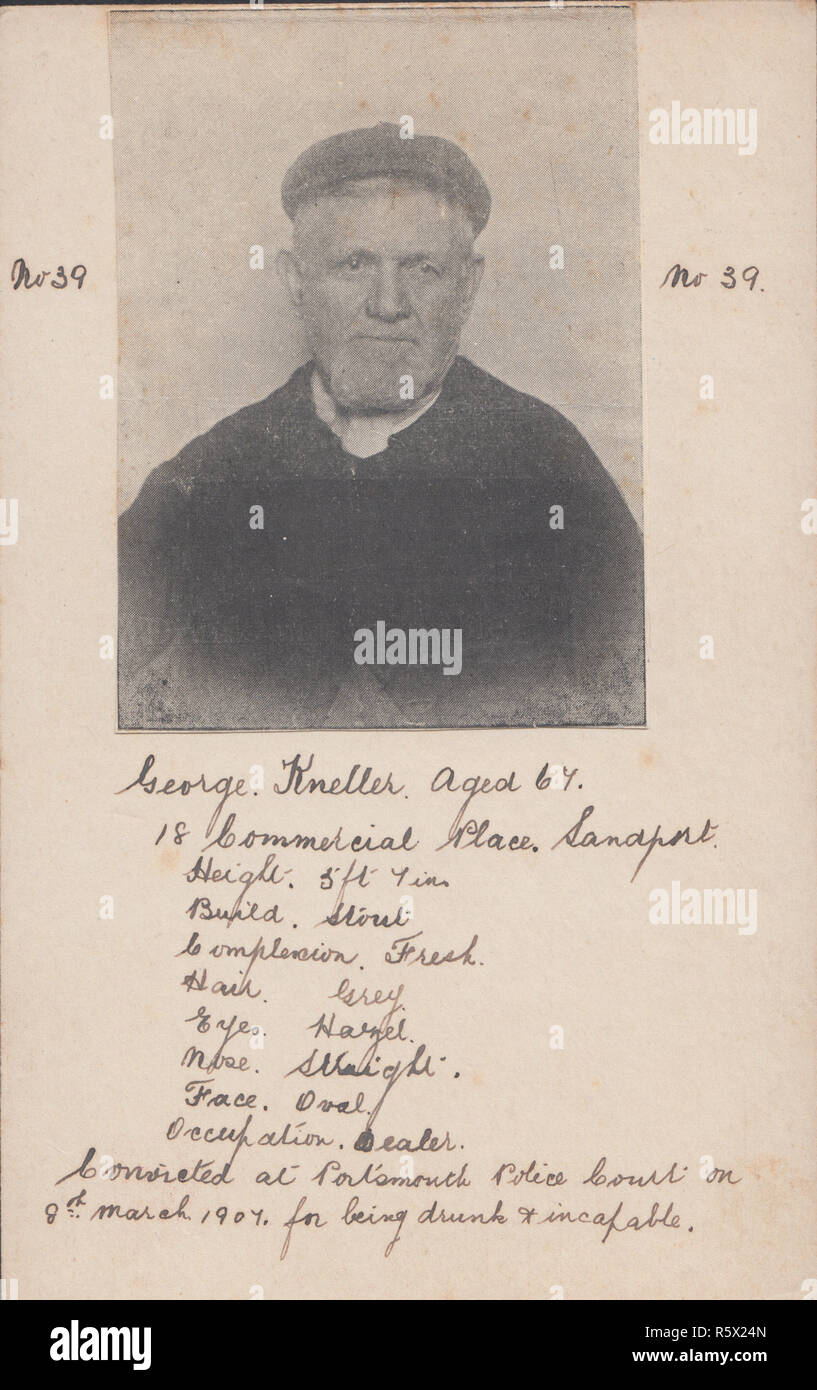 alamy
No 39
No 39.
alamy
George. Kneller. Aged 67.
18 Commercial Place. Landport.
Height. 5ft 7in.
Build. Stout
Complexion. Fresh.
Hair. Grey.
Eyes. Hazel.
Nose. Straight.
Face. Oval.
Occupation. Dealer.
Convicted at Portsmouth Police Court on
8th March. 1907. for being drunk & incapable.
alamy
alamy
Image ID: R5X24N
www.alamy.com